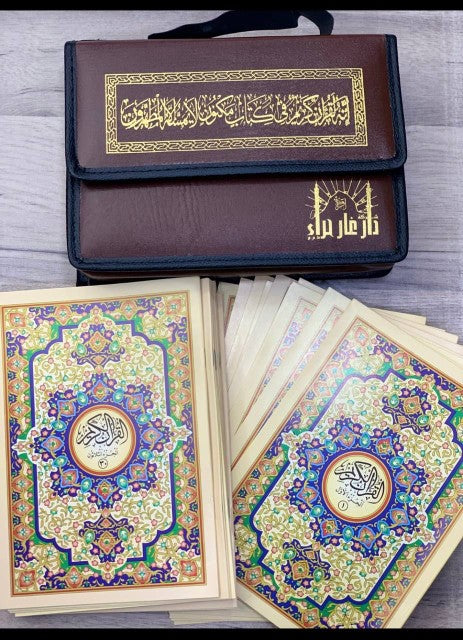 إنه لقرآن كريم في كتاب مكنون لا يمسه إلا المطهرون
دار غار حراء
القرآن الكريم
الجزء الثلاثون
٣٠
القرآن الكريم
الجزء الأول
١